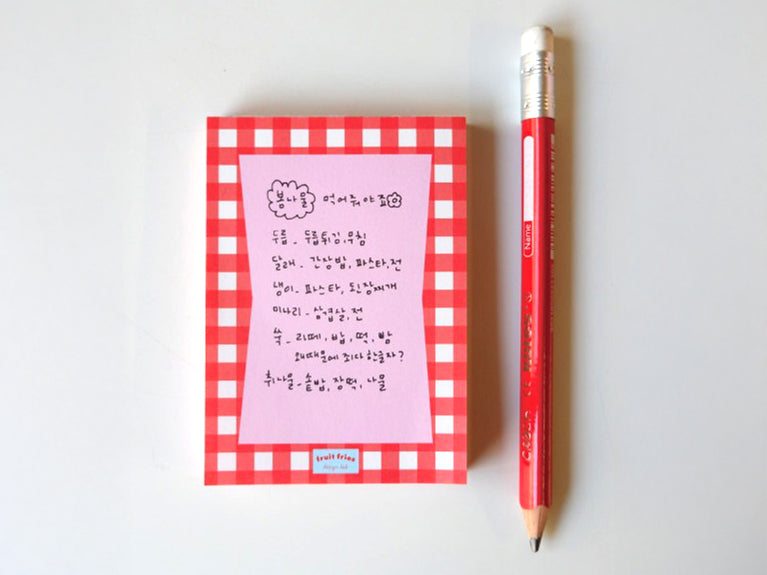 봄나물 먹어줘야죠
두릅 - 두릅튀김, 무침
달래 - 간장밥, 파스타, 전
냉이 - 파스타, 된장찌개
미나리 - 삼겹살, 전
쑥 - 라떼, 밥, 떡, 빵
왜때문에 죄다 한글자?
취나물 - 솥밥, 장떡, 나물
fruit fries
design lab
Name